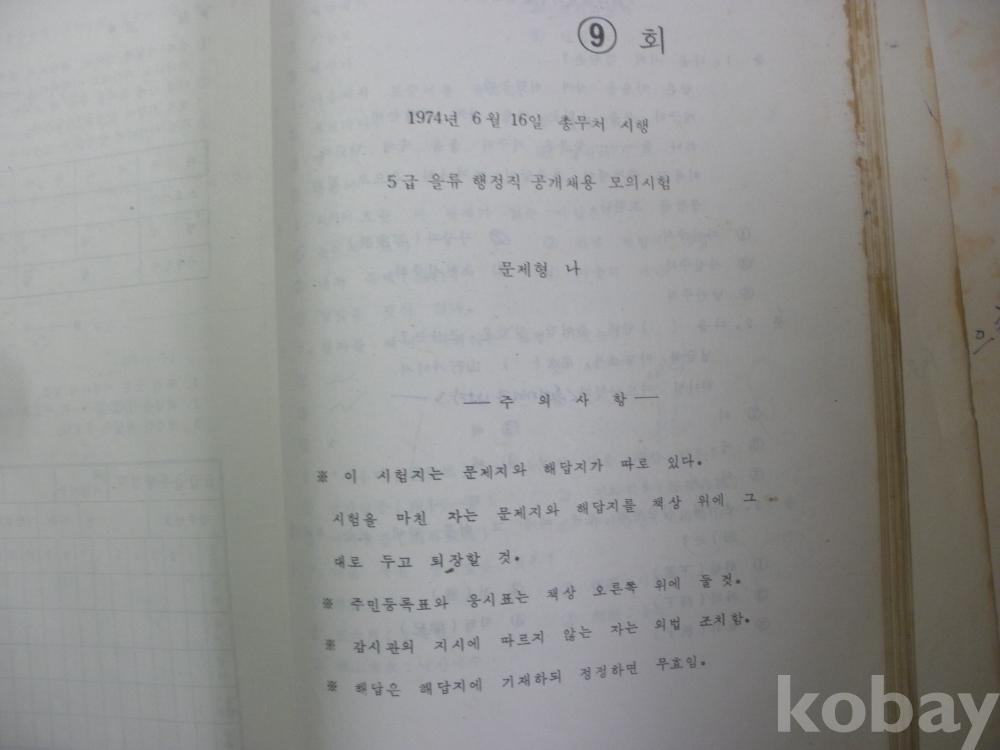 ⑨ 회
1974년 6월 16일 총무처 시행
5급 을류 행정직 공개채용 모의시험
문제형 나
── 주 의 사 항 ──
※ 이 시험지는 문제지와 해답지가 따로 있다.
시험을 마친 자는 문제지와 해답지를 책상 위에 그
대로 두고 퇴장할 것.
※ 주민등록표와 응시표는 책상 오른쪽 위에 둘것.
※ 감시관의 지시에 따르지 않는 자는 의법 조치함.
※ 해답은 해답지에 기재하되 정정하면 무효임.
kobay